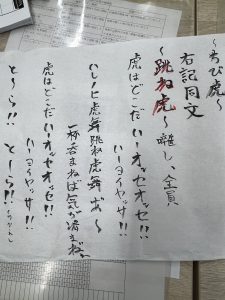 〜ちび虎〜
右記同文
〜跳ね虎〜 囃し、全員
虎はどこだ いーオッセオッセ!!
いーヨイヤッサ!!
ハレノヒ虎舞跳ね虎舞 あ〜
一杯呑まねば気が済まねぇ〜
虎はどこだ いーオッセオッセ!!
いーヨイヤッサ!!
と〜ら!! と〜ら!!